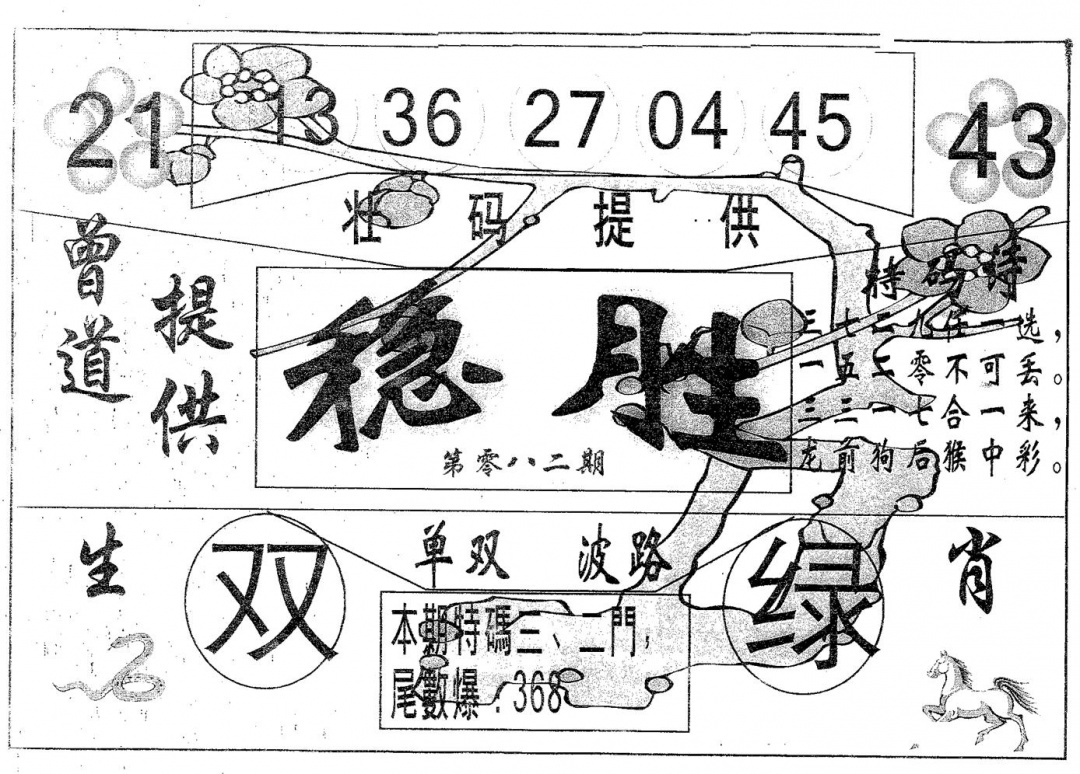 21 13 36 27 04 45 43
壮码提供
曾道
提供
特码诗
稳胜
三七二九任一选，
一五二零不可丢。
三二一七合一来，
龙前狗后猴中彩。
第零八二期
生 双 单双 波路 绿 肖
本期特碼三、二門，
尾數爆：368